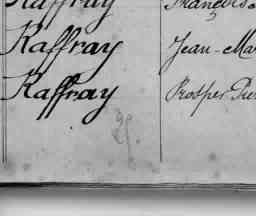 Raffray François
Raffray Jean-Mar
Raffray Prosper Pie